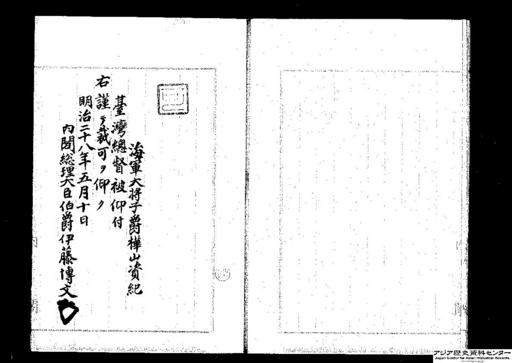 海軍大将子爵樺山資紀
臺灣總督被仰付
右謹テ裁可ヲ仰ク
明治二十八年五月十日
内閣総理大臣伯爵伊藤博文
アジア歴史資料センター
Japan Center for Asian Historical Records